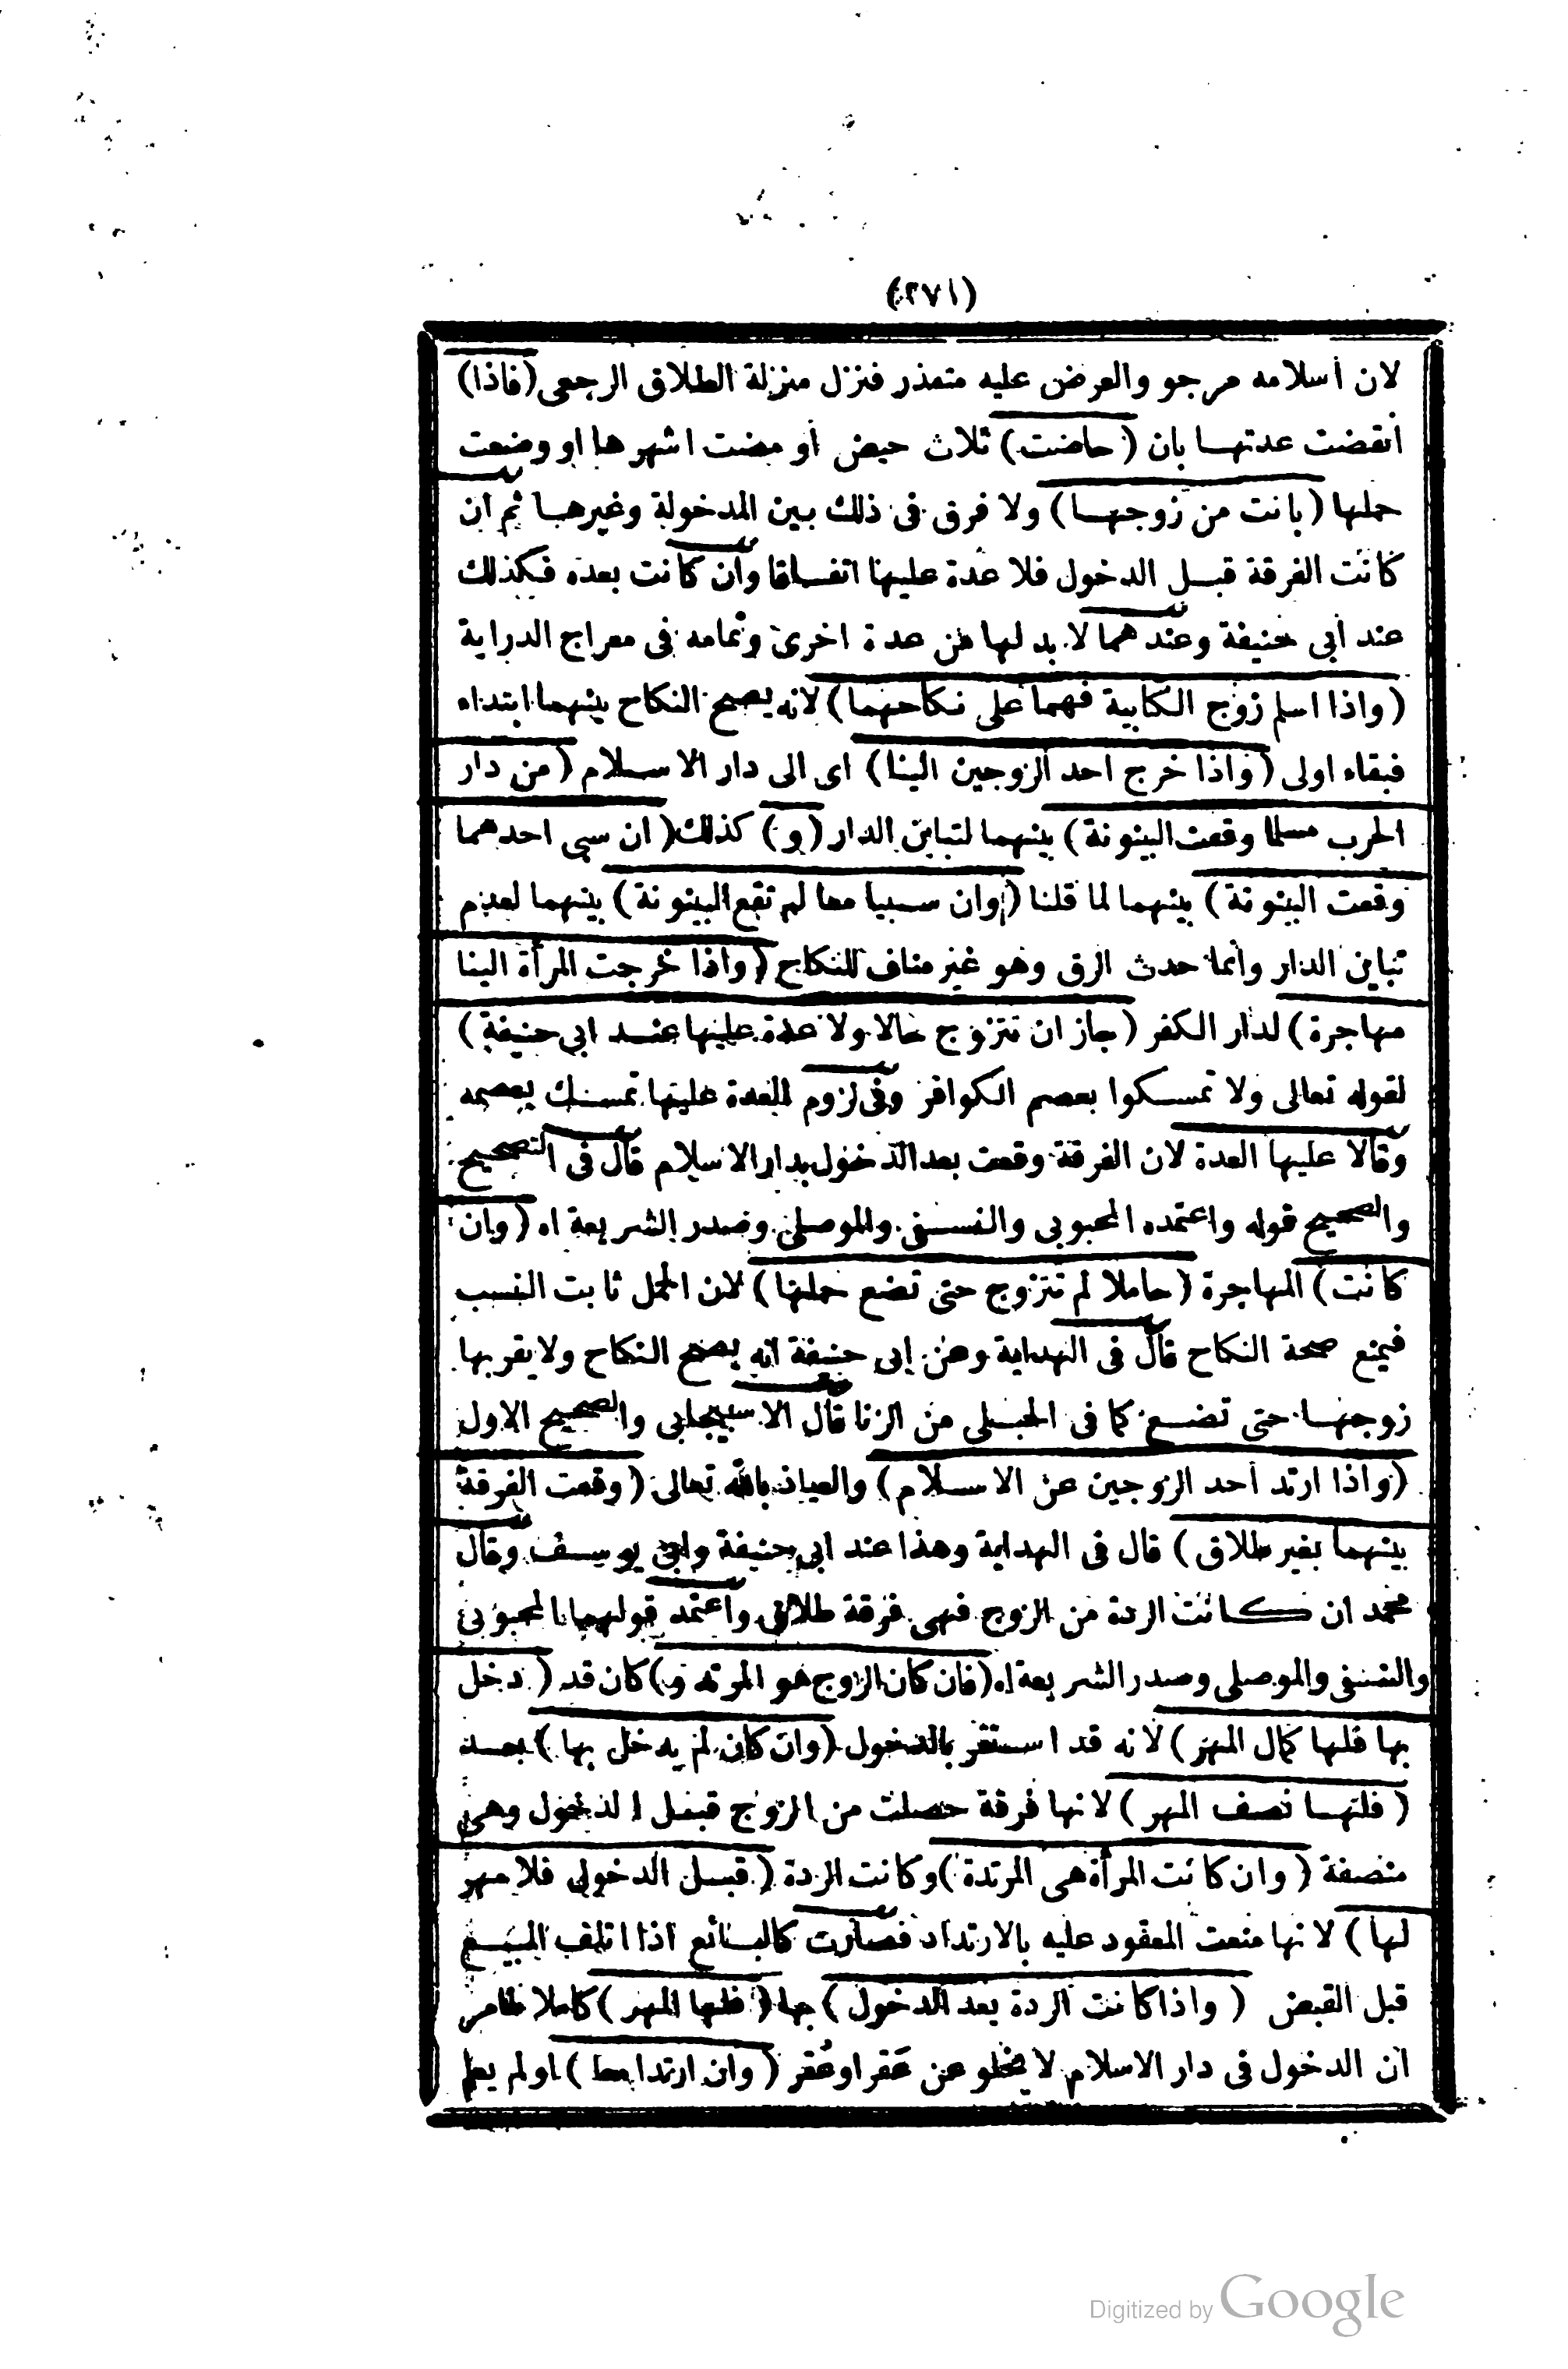 (٢٧١)
لان أسلامه مرجو والعرض عليه متعذر فنزل منزلة الطلاق الرجعى (فاذا)
انقضت عدتها بان (حاضت) ثلاث حيض أو مضت اشهرها او وضعت
حملها (بانت من زوجها) ولا فرق فى ذلك بين المدخولة وغيرها ثم ان
كانت الفرقة قبل الدخول فلا عدة عليها اتفاقا وان كانت بعده فكذلك
عند أبى حنيفة وعندهما لا بد لها من عدة اخرى وتمامه فى معراج الدراية
(واذا اسلم زوج الكابية فهما على نكاحهما) لانه يصح النكاح بينهما ابتداء
فبقاء اولى (واذا خرج احد الزوجين الينا) اى الى دار الاسلام (من دار
الحرب مسلما وقعت البينونة) بينهما لتباين الدار (و) كذلك (ان سبى احدهما
وقعت البينونة) بينهما لما قلنا (وان سبيا معا لم تقع البينونة) بينهما لعدم
تباين الدار وانما حدث الرق وهو غير مناف للنكاح (واذا خرجت المرأة الينا
مهاجرة) لدار الكفر (جاز ان تتزوج حالا ولا عدة عليها عند ابى حنيفة)
لقوله تعالى ولا تمسكوا بعصم الكوافر وفى لزوم العدة عليها تمسك بعصمه
وقالا عليها العدة لان الفرقة وقعت بعد الدخول بدار الاسلام قال فى التصحيح
والصحيح قوله واعتمده المحبوبى والنسفى والموصلى وصدر الشريعة اه (وان
كانت) المهاجرة (حاملا لم تتزوج حتى تضع حملها) لان الحمل ثابت النسب
فيمنع صحة النكاح قال فى الهداية وعن ابى حنيفة انه يصح النكاح ولا يقربها
زوجها حتى تضع كما فى الحبلى من الزنا قال الاسبيجابى والصحيح الاول
(واذا ارتد أحد الزوجين عن الاسلام) والعياذ بالله تعالى (وقعت الفرقة
بينهما بغير طلاق) قال فى الهداية وهذا عند ابى حنيفة وابى يوسف وقال
محمد ان كانت الردة من الزوج فهى فرقة طلاق واعتمد قولهما المحبوبى
والنسفى والموصلى وصدر الشريعة اه (فان كان الزوج هو المرتد و) كان قد (دخل
بها فلها كمال المهر) لانه قد استقر بالدخول (وان كان لم يدخل بها) بعد
(فلها نصف المهر) لانها فرقة حصلت من الزوج قبل الدخول وهى
منصفة (وان كانت المرأة هى المرتدة) وكانت الردة (قبل الدخول فلا مهر
لها) لانها منعت المعقود عليه بالارتداد فصارت كالبائع اذا اتلف المبيع
قبل القبض (واذا كانت الردة بعد الدخول) بها (فلها المهر) كاملا لما مر
ان الدخول فى دار الاسلام لا يخلو عن عَقر او عُقر (وان ارتدا معا) او لم يعلم
Digitized by Google